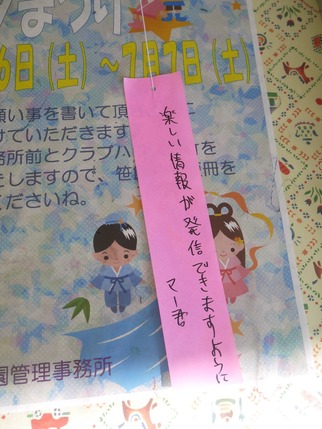 まつり
6日(土)~7月7日(土)
願い事を書いて頂
けていただきます
務所前とクラブハ
をしますので、笹
くださいね。
楽しい情報が発信できますように
マー君
園管理事務所